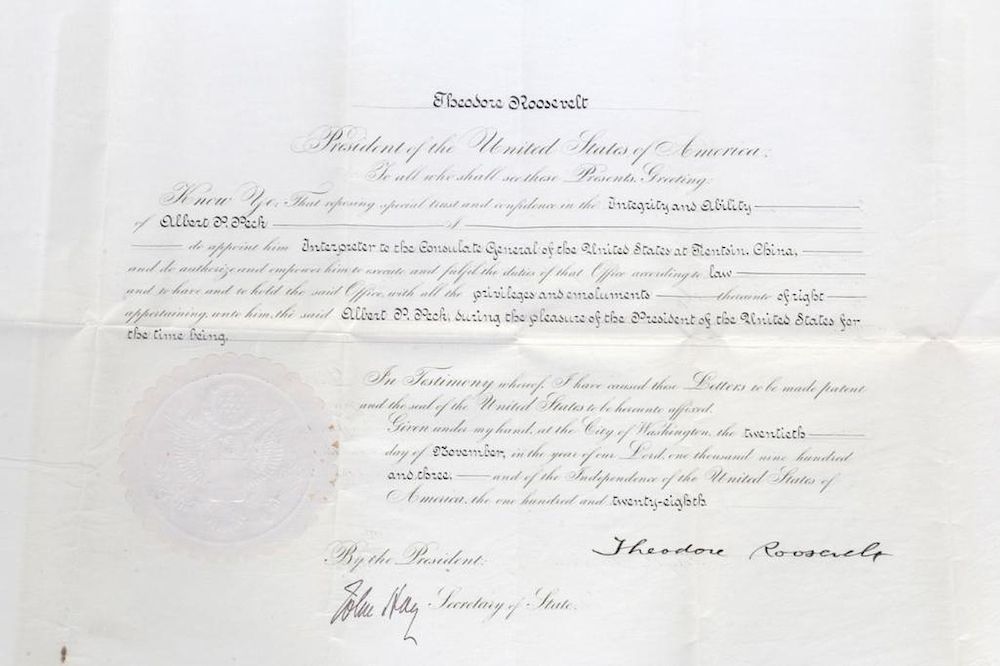 Theodore Roosevelt
President of the United States of America,
To all who shall see these Presents, Greeting:
Know Ye, That reposing special trust and confidence in the Integrity and Ability
of Albert P. Peck I
do appoint him Interpreter to the Consulate General of the United States at Tientsin, China,
and do authorize and empower him to execute and fulfil the duties of that Office according to law
and to have and to hold the said Office, with all the privileges and emoluments thereunto of right
appertaining, unto him, the said Albert P. Peck, during the pleasure of the President of the United States for
the time being.
In Testimony whereof, I have caused these Letters to be made patent
and the seal of the United States to be hereunto affixed.
Given under my hand, at the City of Washington, the twentieth
day of November, in the year of our Lord, one thousand nine hundred
and three, and of the Independence of the United States of
America, the one hundred and twenty-eighth.
Theodore Roosevelt
By the President:
John Hay Secretary of State.